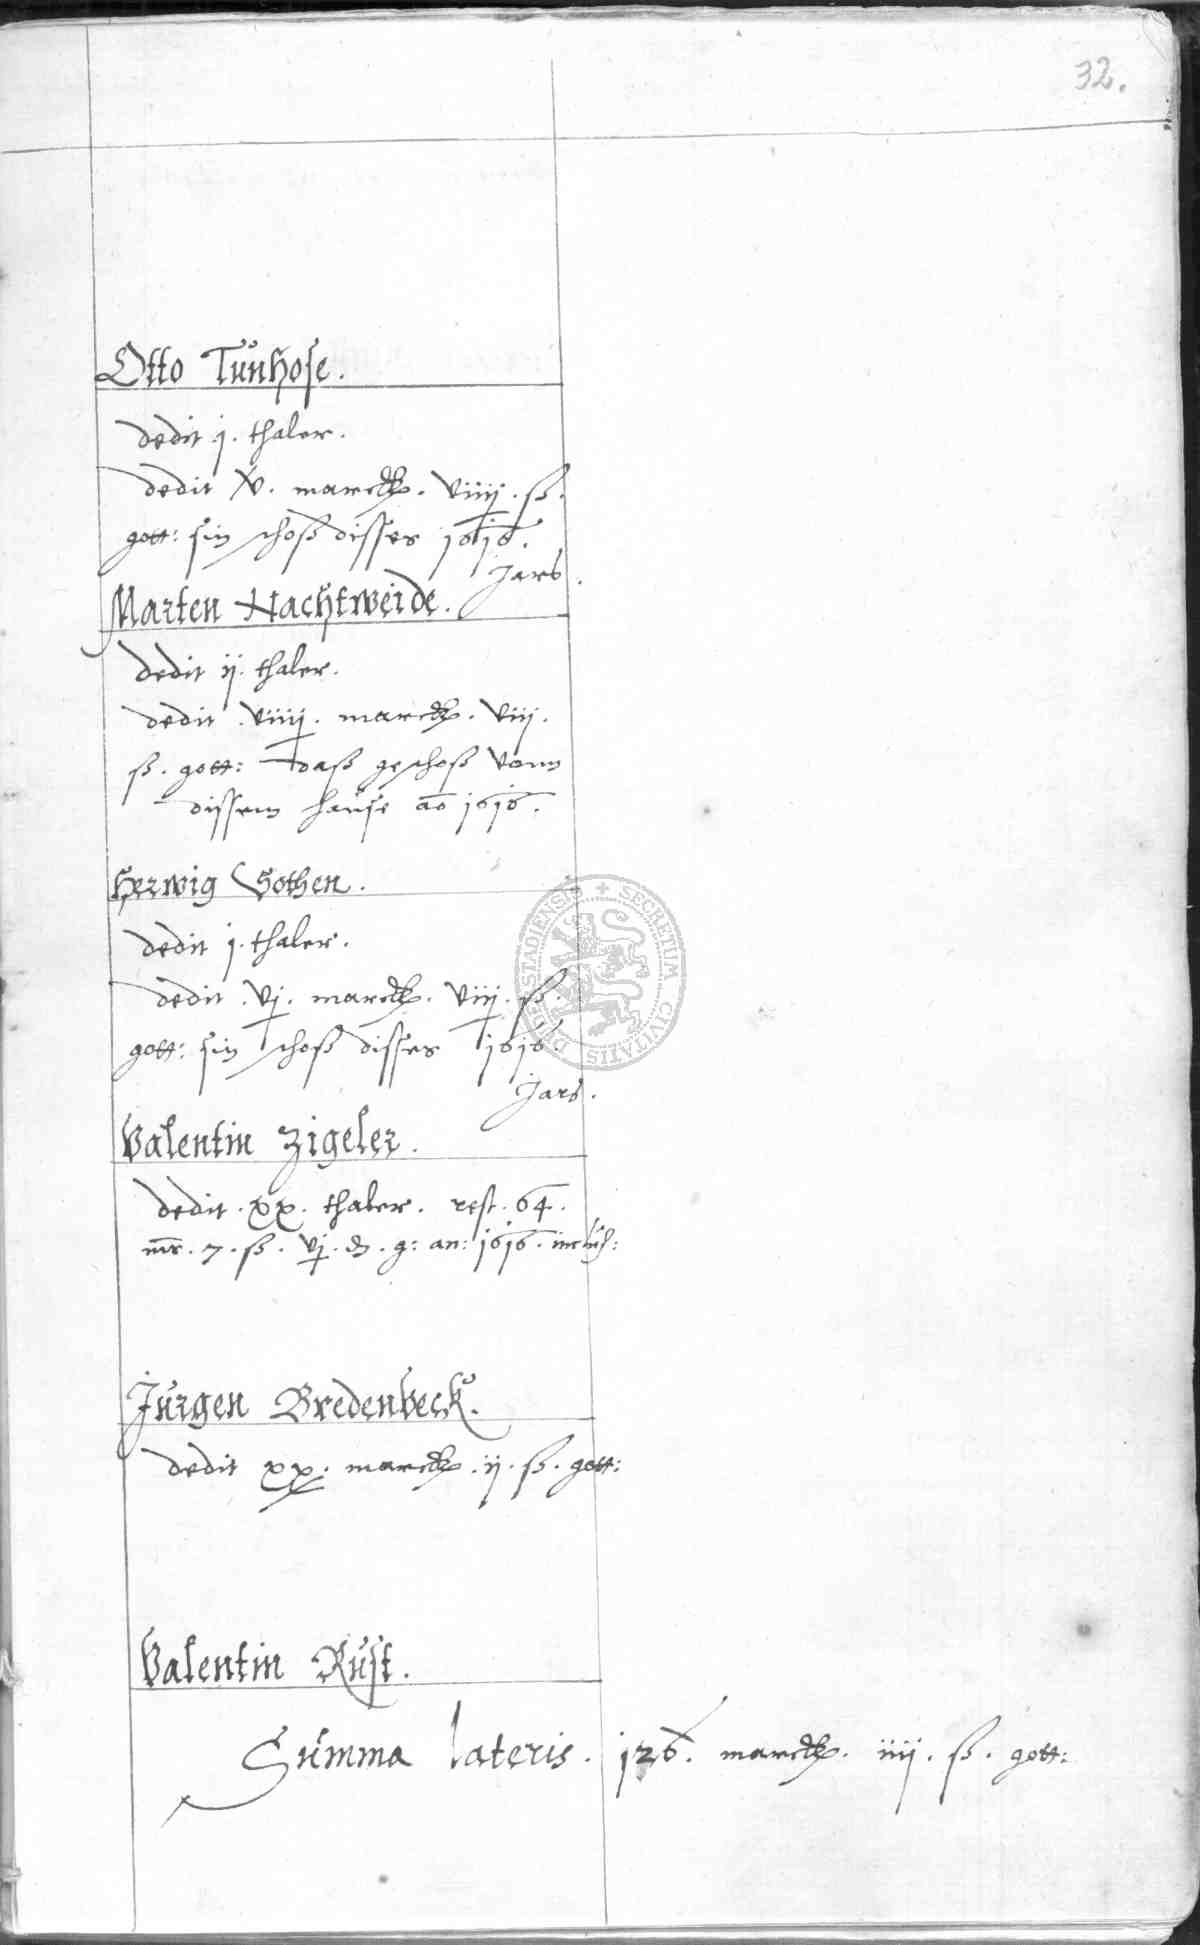 32.
Otto Tünhose.
dedit j. thaler.
dedit xv. marck. viiij. ß.
gott: sin schoß disses 1616.
Jars.
Marten Nachtweide.
dedit ij. thaler.
dedit viiij. marck. viij.
ß. gott: daß geschoß vonn
dissem hause ao 1616.
Herwig Gothen.
dedit j. thaler.
dedit vj. marck. viij. ß.
gott: sin schoß disses 1616.
Jars.
Valentin Zigeler.
dedit xx. thaler. rest. 64.
mr. 7. ß. vj. ₰. g: an: 1616. inclus:
Jürgen Bredenbeck.
dedit xx. marck. ij. ß. gott:
Valentin Rüst.
Summa lateris. 126. marck. iiij. ß. gott:
SECRETUM CIVITATIS DUDERSTADIENSIS +